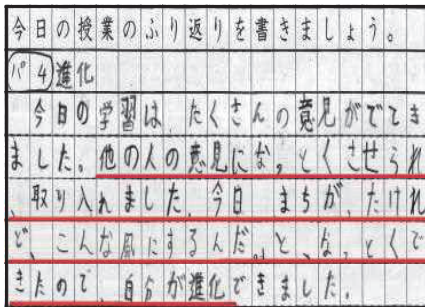 今日の授業のふり返りを書きましょう。
パ4進化
今日の学習は、たくさんの意見がでてき
ました。他の人の意見になっとくさせられ
、取り入れました。今日、まちがったけれ
ど、こんな風にするんだ。と、なっとくで
きたので、自分が進化できました。